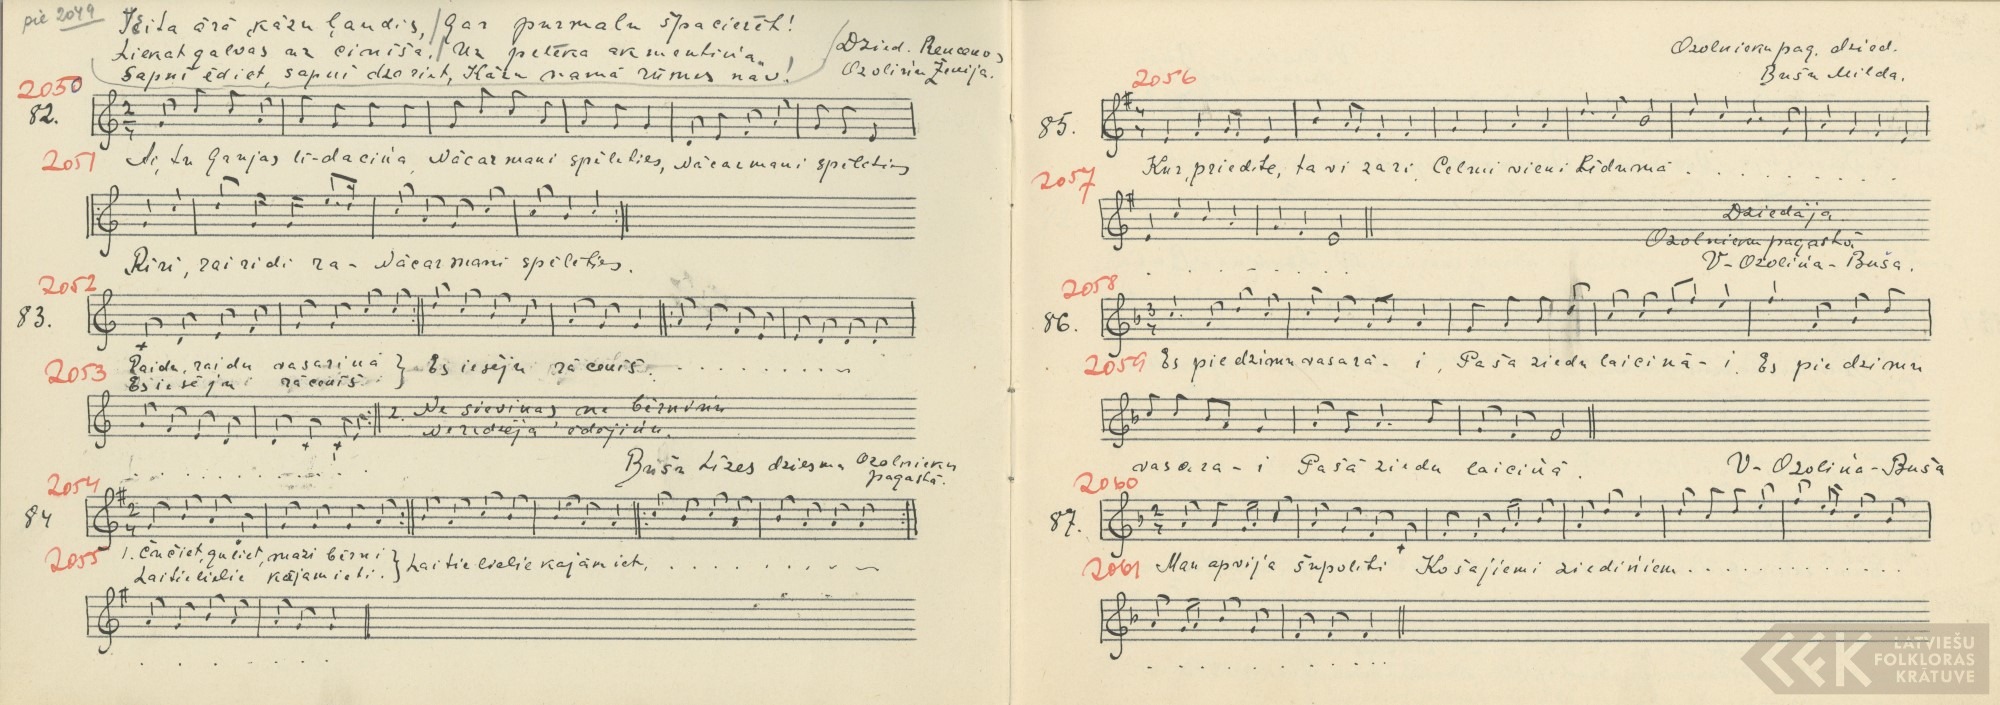 pie 2049
Išita ārā, kāzu ļaudis, Gar purmalu špacierēt!
Liekat galvas uz cimiša, Uz pelēka akmentiņa.
Sapuš ēdiet, sapuš dzeriet, Kāzu namā rūmes nav!
Dzied. Rencenos
Ozoliņu Ženija.
2050
82.
Ai, tu Gaujas līdaciņa, Nācarmani spēlēties, Nācarmani spēlēties
2051
Riri, rairidi ra - Nācarmani spēlēties.
2052
83.
Raidu, raidu vasariņā } Es iesēju rācenīš.
Es iesēju rācenīš
2053
2. Ne sieviņas, ne bērniņu
Neredzēja ēdājiņu.
Bušu Līzes dziesma Ozolnieku
pagastā.
2054
84
1. Čučiet, guliet, mazi bērni } Lai tie lielie kājām iet,
Lai tie lielie kājām ieti.
2055
Ozolnieku pag. dzied.
Bušu Milda.
2056
85.
Kur, priedīte, tavi zari, Celmi vieni līdumā
2057
Dziedāja
Ozolnieku pagastā
V-Ozoliņa-Buša.
2058
86.
Es piedzimu vasarā - i, Pašā ziedu laiciņā - i. Es piedzimu
2059
vasara - i Pašā ziedu laiciņā.
V-Ozoliņa-Buša
2060
87.
Man apvija šūpolīti Košajiemi ziediņiem
2061
LATVIEŠU
FOLKLORAS
KRĀTUVE